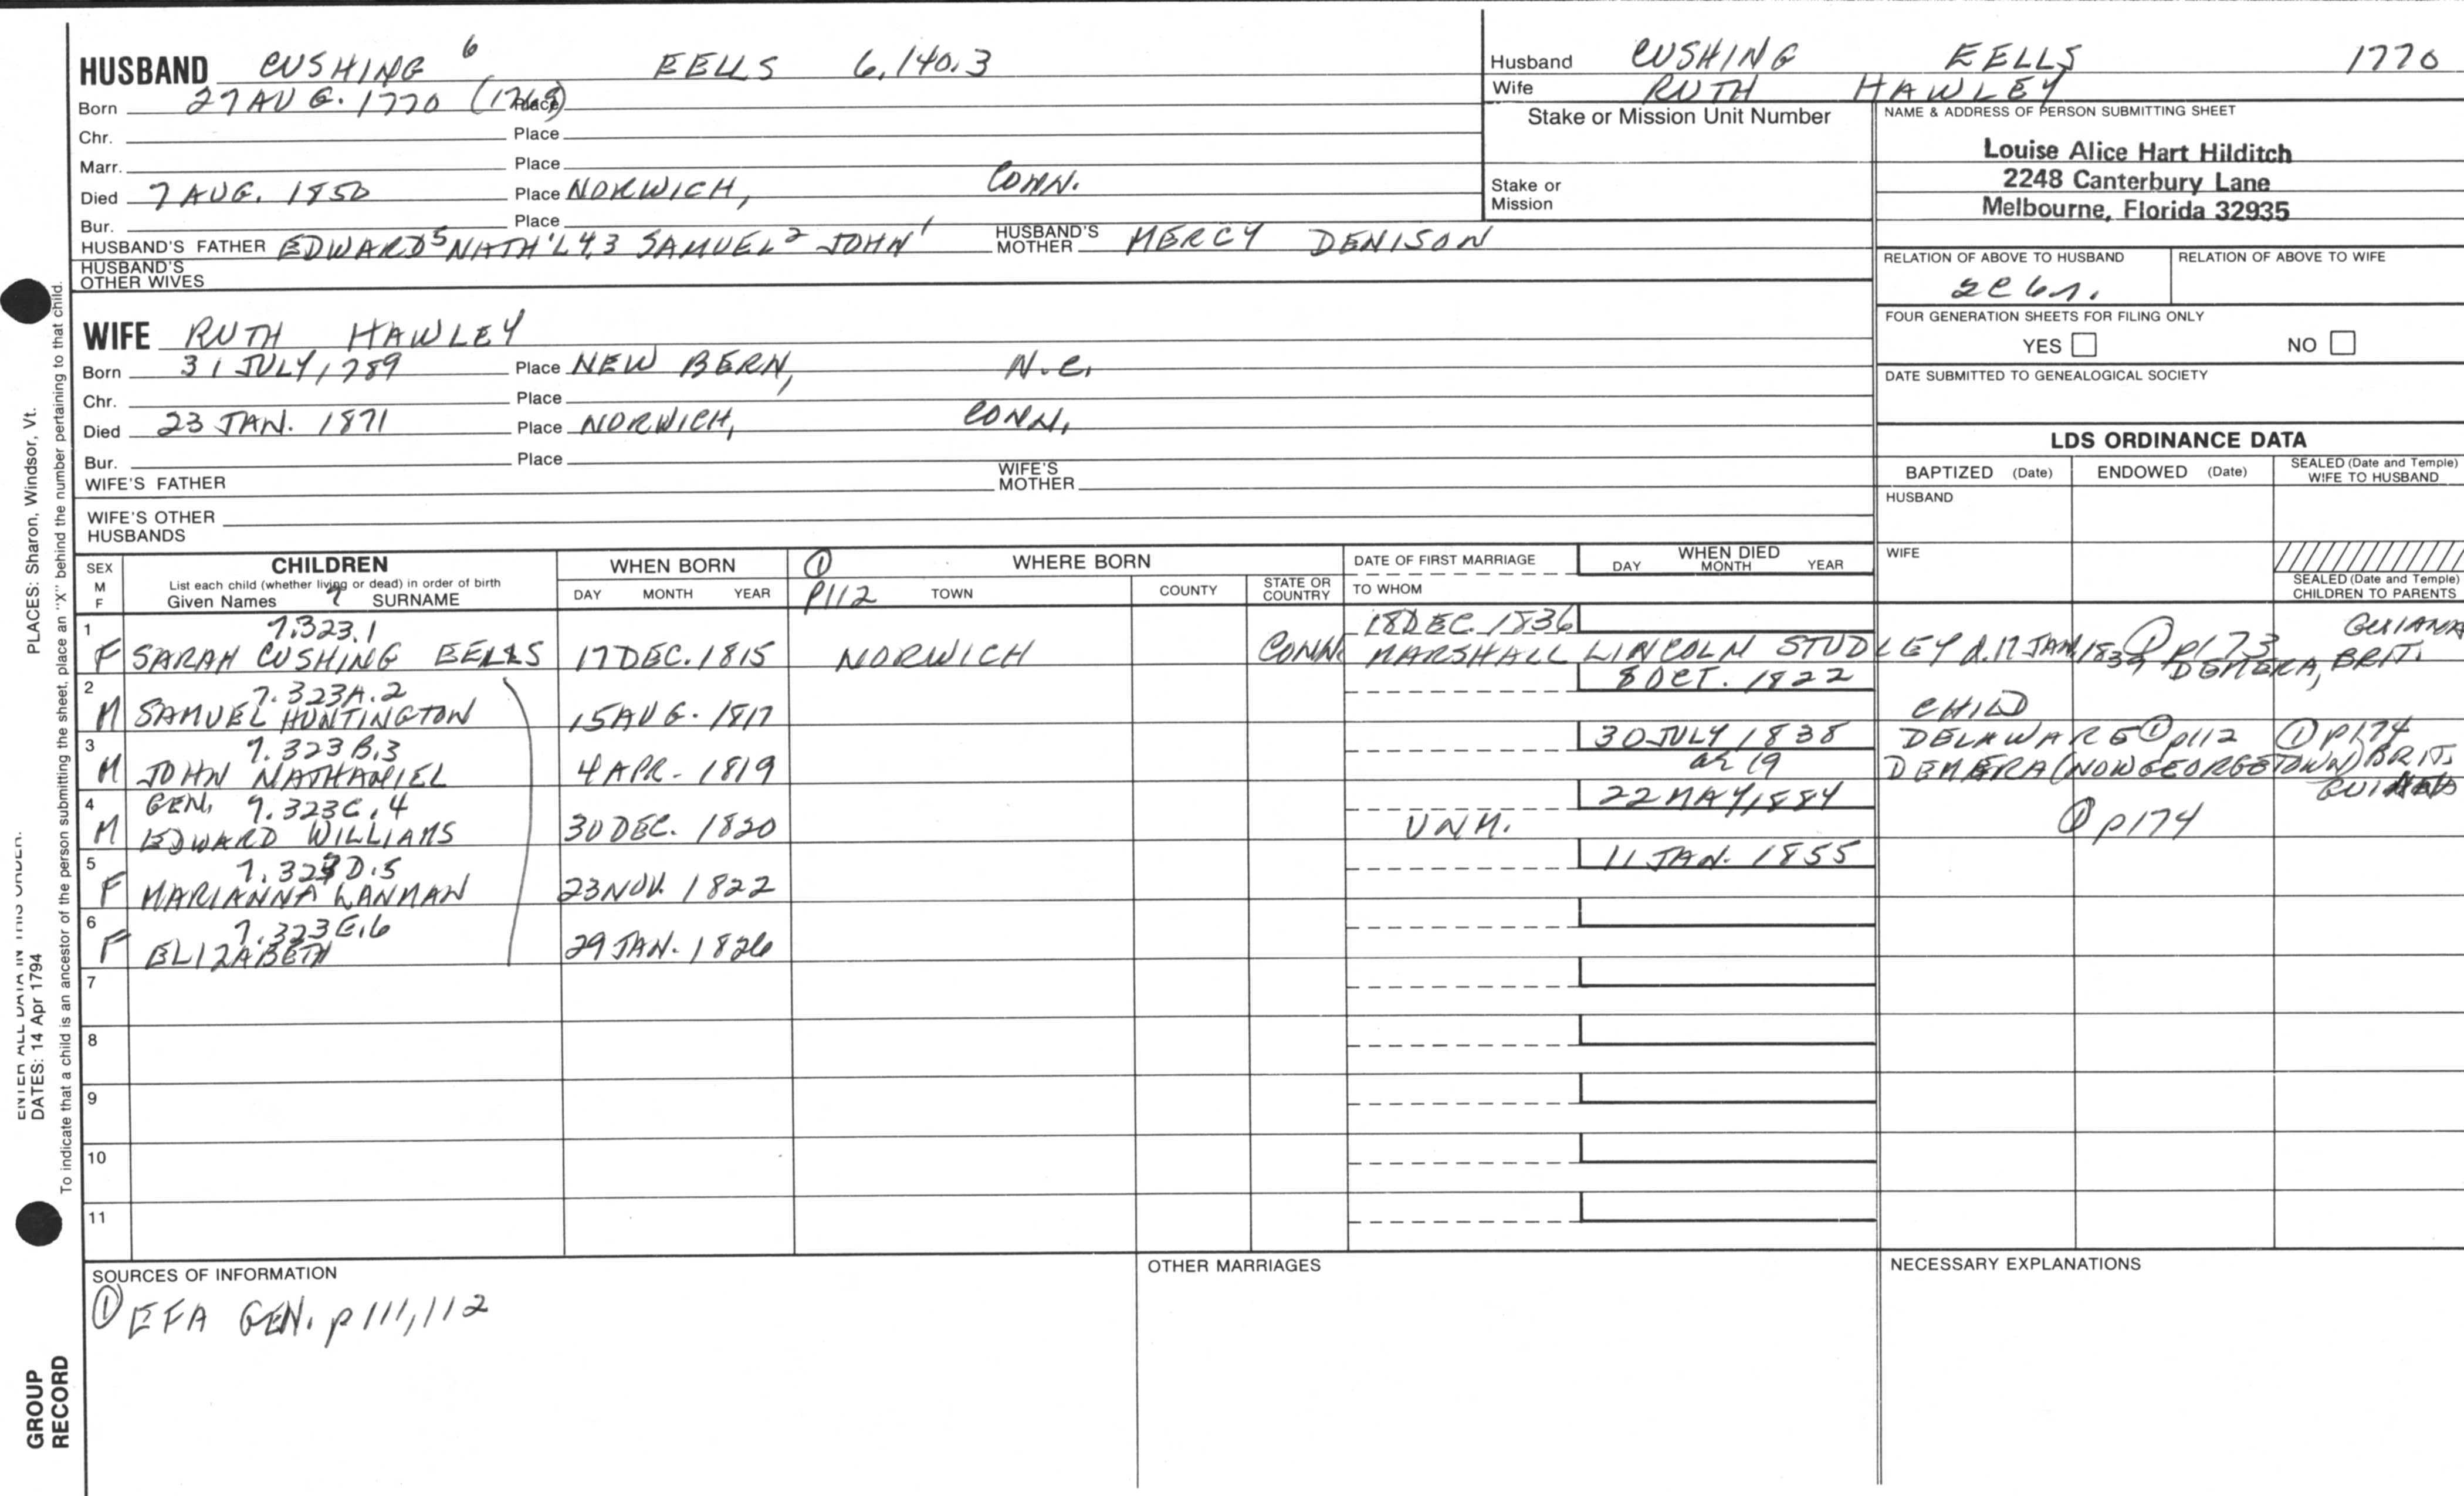 HUSBAND CUSHING 6 EELLS 6.140.3
Born 27 AUG. 1770 (1769) Place
Chr. Place
Marr. Place
Died 7 AUG. 1850 Place NORWICH, CONN.
Bur. Place
HUSBAND'S FATHER EDWARD5 NATH'L 4,3 SAMUEL2 JOHN1 HUSBAND'S MOTHER MERCY DENISON
HUSBAND'S OTHER WIVES
Husband CUSHING EELLS 1770
Wife RUTH HAWLEY
Stake or Mission Unit Number
Stake or Mission
NAME & ADDRESS OF PERSON SUBMITTING SHEET
Louise Alice Hart Hilditch
2248 Canterbury Lane
Melbourne, Florida 32935
RELATION OF ABOVE TO HUSBAND RELATION OF ABOVE TO WIFE
FOUR GENERATION SHEETS FOR FILING ONLY
YES NO
DATE SUBMITTED TO GENEALOGICAL SOCIETY
WIFE RUTH HAWLEY
Born 31 JULY, 1789 Place NEW BERN, N.C.
Chr. Place
Died 23 JAN. 1871 Place NORWICH, CONN.
Bur. Place
WIFE'S FATHER WIFE'S MOTHER
WIFE'S OTHER HUSBANDS
LDS ORDINANCE DATA
BAPTIZED (Date) ENDOWED (Date) SEALED (Date and Temple) WIFE TO HUSBAND
HUSBAND
WIFE
SEALED (Date and Temple) CHILDREN TO PARENTS
SEX M F CHILDREN WHEN BORN ① WHERE BORN DATE OF FIRST MARRIAGE WHEN DIED
List each child (whether living or dead) in order of birth
Given Names 7 SURNAME DAY MONTH YEAR P112 TOWN COUNTY STATE OR COUNTRY TO WHOM DAY MONTH YEAR
1 7.323.1 18 DEC. 1836 GUIANA
F SARAH CUSHING EELLS 17 DEC. 1815 NORWICH CONN. MARSHALL LINCOLN STUDLEY d. 17 JAN. 1839 ① p173 DEMERA, BRIT.
2 7.323A.2 8 OCT. 1822
M SAMUEL HUNTINGTON 15 AUG. 1817 CHILD
3 7.323B.3 30 JULY 1838 DELAWARE ① p112 ① P174
M JOHN NATHANIEL 4 APR. 1819 ae 19 DEMERA (NOW GEORGETOWN) BRIT.
4 GEN. 7.323C.4 22 MAY, 1884
M EDWARD WILLIAMS 30 DEC. 1820 UNM. ① p174
5 7.323D.5 11 JAN. 1855
F MARIANNA LANMAN 23 NOV. 1822
6 7.323E.6
F ELIZABETH 29 JAN. 1826
7
8
9
10
11
SOURCES OF INFORMATION OTHER MARRIAGES NECESSARY EXPLANATIONS
① EFA GEN. p 111, 112
PLACES: Sharon, Windsor, Vt.
ENTER ALL DATA IN THIS ORDER:
DATES: 14 Apr 1794
To indicate that a child is an ancestor of the person submitting the sheet, place an "X" behind the number pertaining to that child.
GROUP RECORD